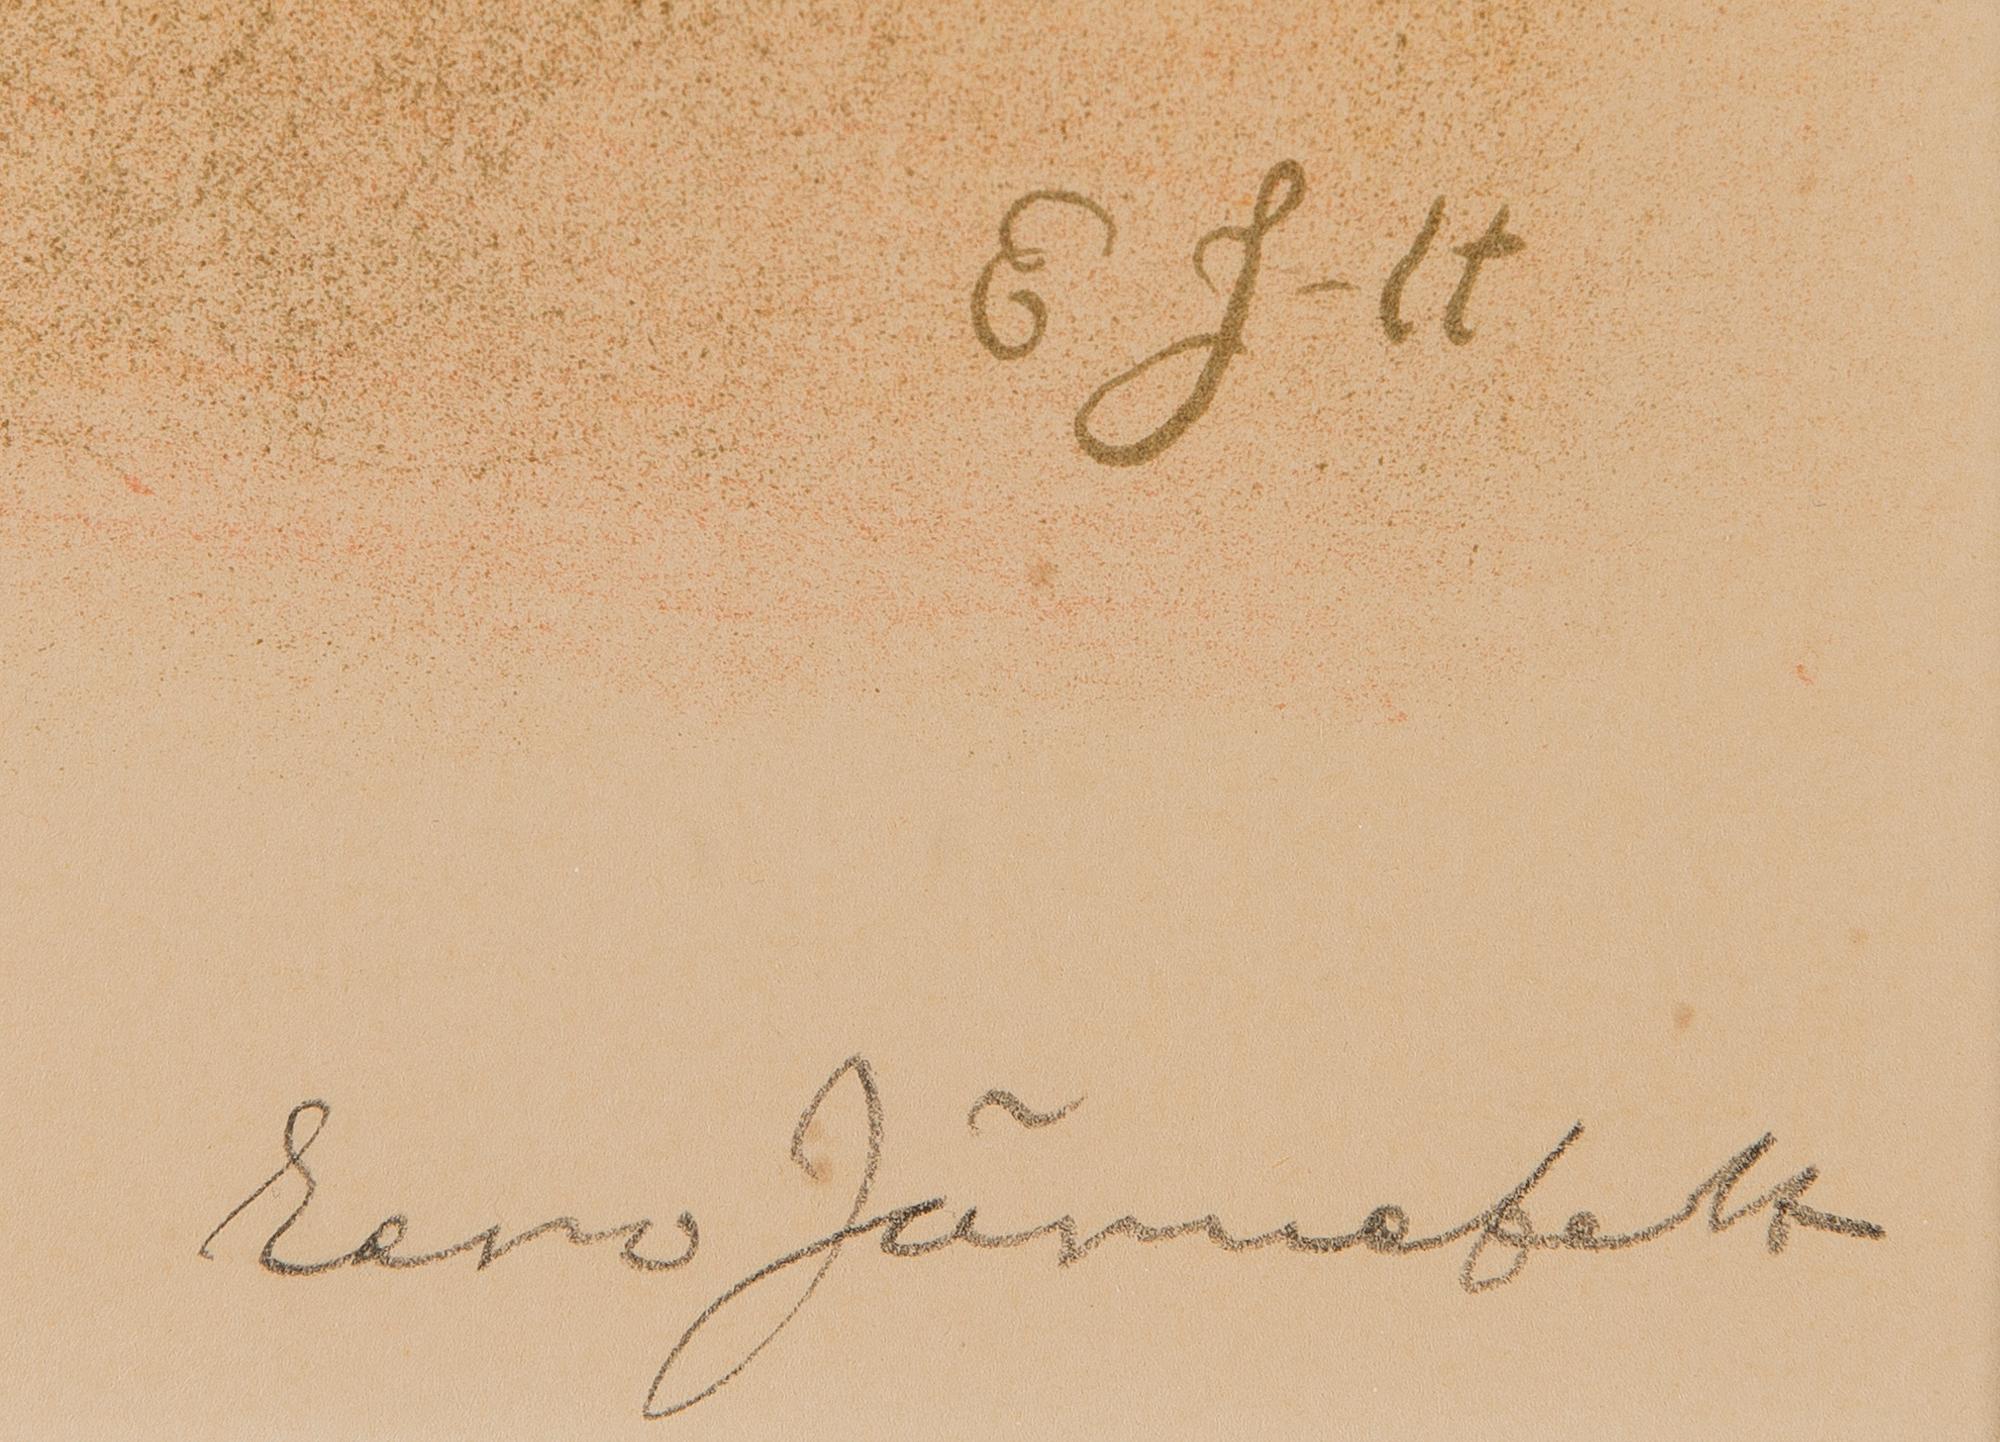 E J-lt
Eero Järnefelt